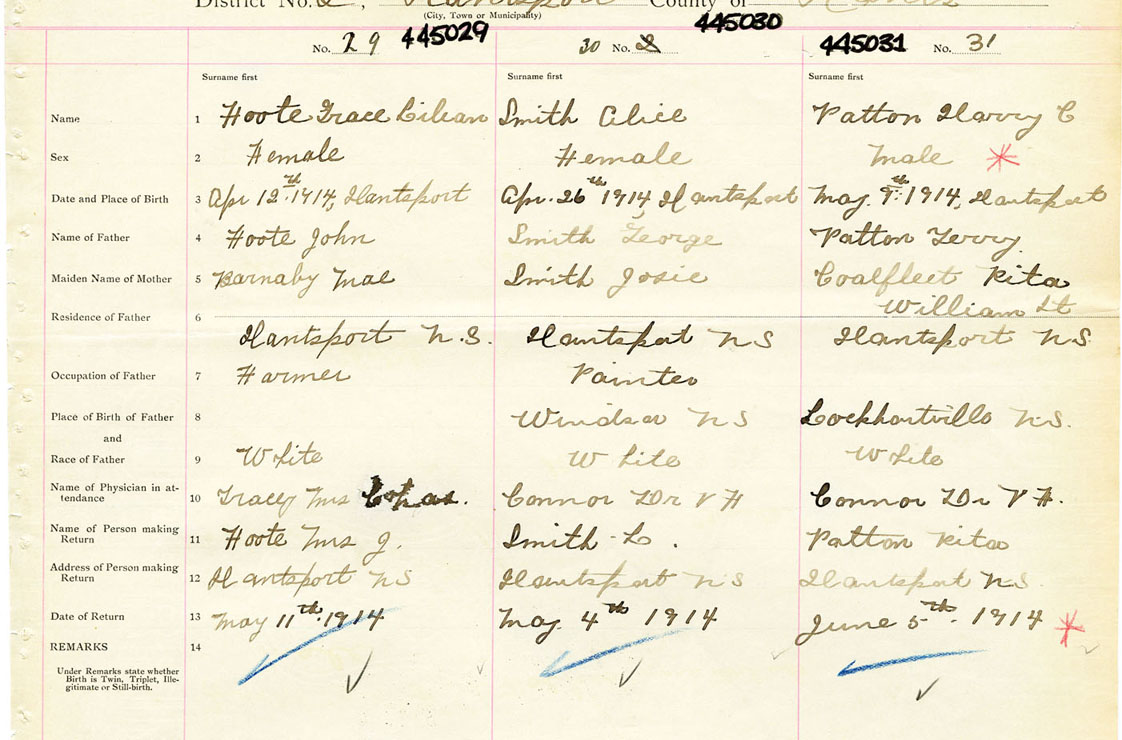 District No. 2, Hantsport County of Hants
(City, Town or Municipality)
No. 29 445029 30 No. 445030 445031 No. 31
Surname first Surname first Surname first
Name 1 Foote Grace Lilean Smith Alice Patton Harry C
Sex 2 Female Female Male
Date and Place of Birth 3 Apr 12th. 1914, Hantsport Apr. 26th 1914, Hantsport May. 9th. 1914, Hantsport
Name of Father 4 Foote John Smith George Patton Terry
Maiden Name of Mother 5 Barnaby Mae Smith Josie Coalfleet Rita
William St
Residence of Father 6
Hantsport N.S. Hantspot N S Hantsport N S.
Occupation of Father 7 Farmer Painter
Place of Birth of Father 8 Windsor N S Lockhartville N.S.
and
Race of Father 9 White White White
Name of Physician in at-
tendance 10 Tracey Mrs Chas. Connor Dr V H Connor Dr V H.
Name of Person making
Return 11 Foote Mrs J. Smith L. Patton Rita
Address of Person making
Return 12 Hantsport N S Hantsport N S Hantsport N S.
Date of Return 13 May 11th. 1914 May. 4th 1914 June 5th. 1914
REMARKS 14
Under Remarks state whether
Birth is Twin, Triplet, Ille-
gitimate or Still-birth.